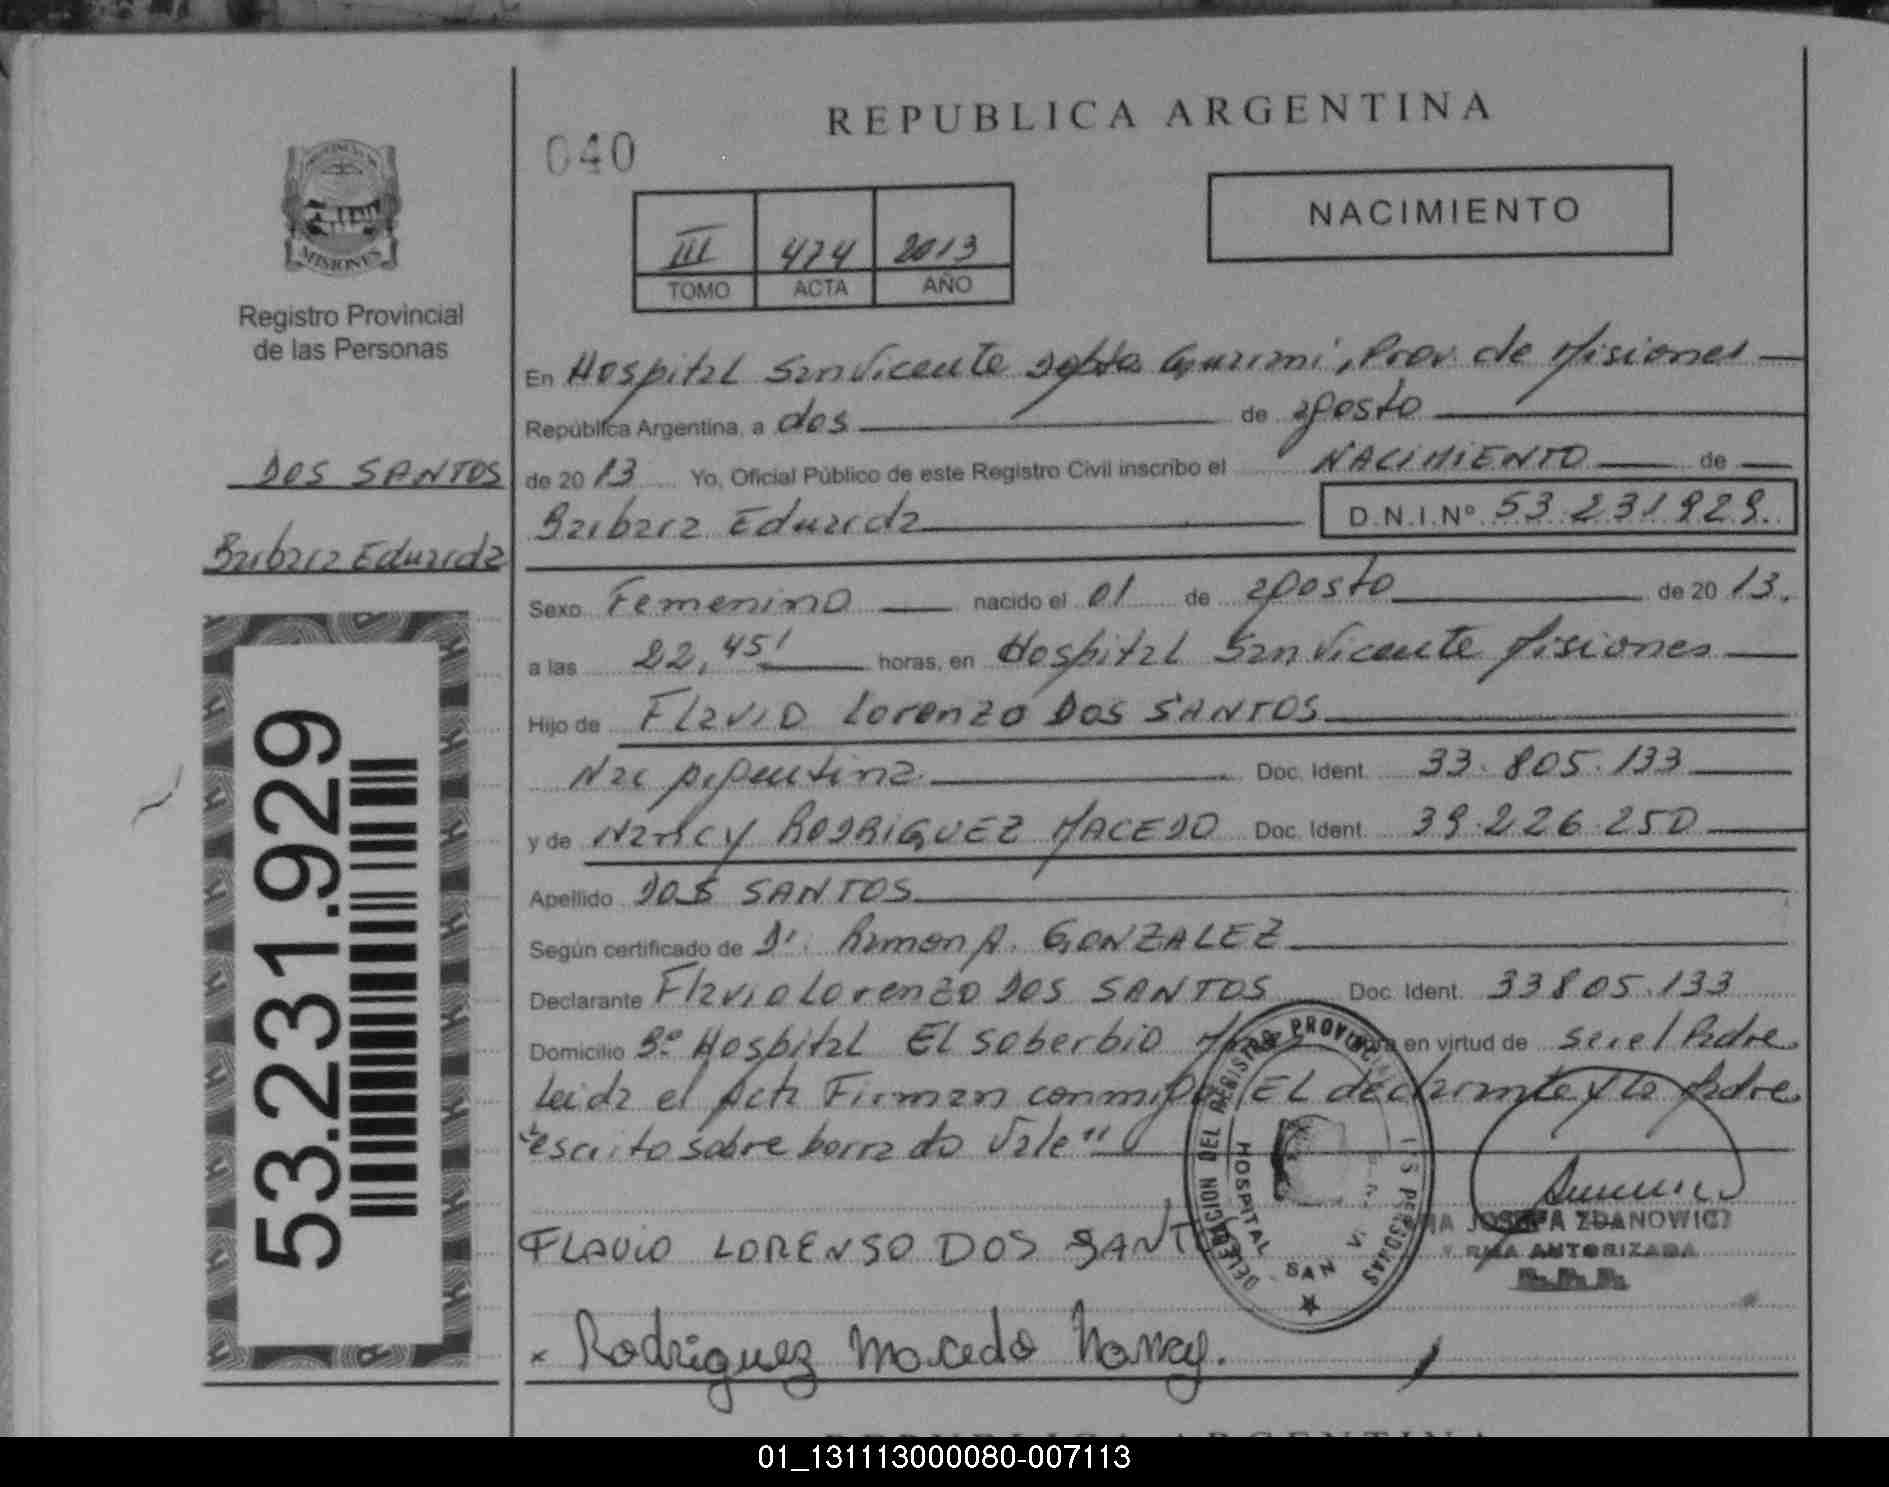 REPUBLICA ARGENTINA
040
NACIMIENTO
III 474 2013
TOMO ACTA AÑO
PROVINCIA DE
MISIONES
Registro Provincial
de las Personas
DOS SANTOS
Barbara Eduarda
53.231.929
En Hospital San Vicente Dpto Guarani, Prov. de Misiones
República Argentina, a dos de agosto
de 2013 Yo, Oficial Público de este Registro Civil inscribo el NACIMIENTO de
Barbara Eduarda D.N.I.Nº 53.231929.
Sexo Femenino nacido el 01 de agosto de 2013.
a las 22,45' horas, en Hospital San Vicente Misiones
Hijo de Flavio Lorenzo DOS SANTOS
Nac Argentina Doc. Ident. 33.805.133
y de Nancy RODRIGUEZ MACEDO Doc. Ident. 39.226.250
Apellido DOS SANTOS
Según certificado de Dr. Ramon A. GONZALEZ
Declarante Flavio Lorenzo DOS SANTOS Doc. Ident. 33805.133
Domicilio Bº Hospital El Soberbio en virtud de ser el Padre
Leida el Acta Firman conmigo El declarante y la Madre
"escrito sobre borrado Vale"
DELEGACION DEL REGISTRO PROVINCIAL PERSONAS
HOSPITAL SAN
JOSEFA ZDANOWICZ
FIRMA AUTORIZADA
FLAVIO LORENSO DOS SANT
x Rodriguez Macedo Nancy.
REPUBLICA ARGENTINA
01_131113000080-007113